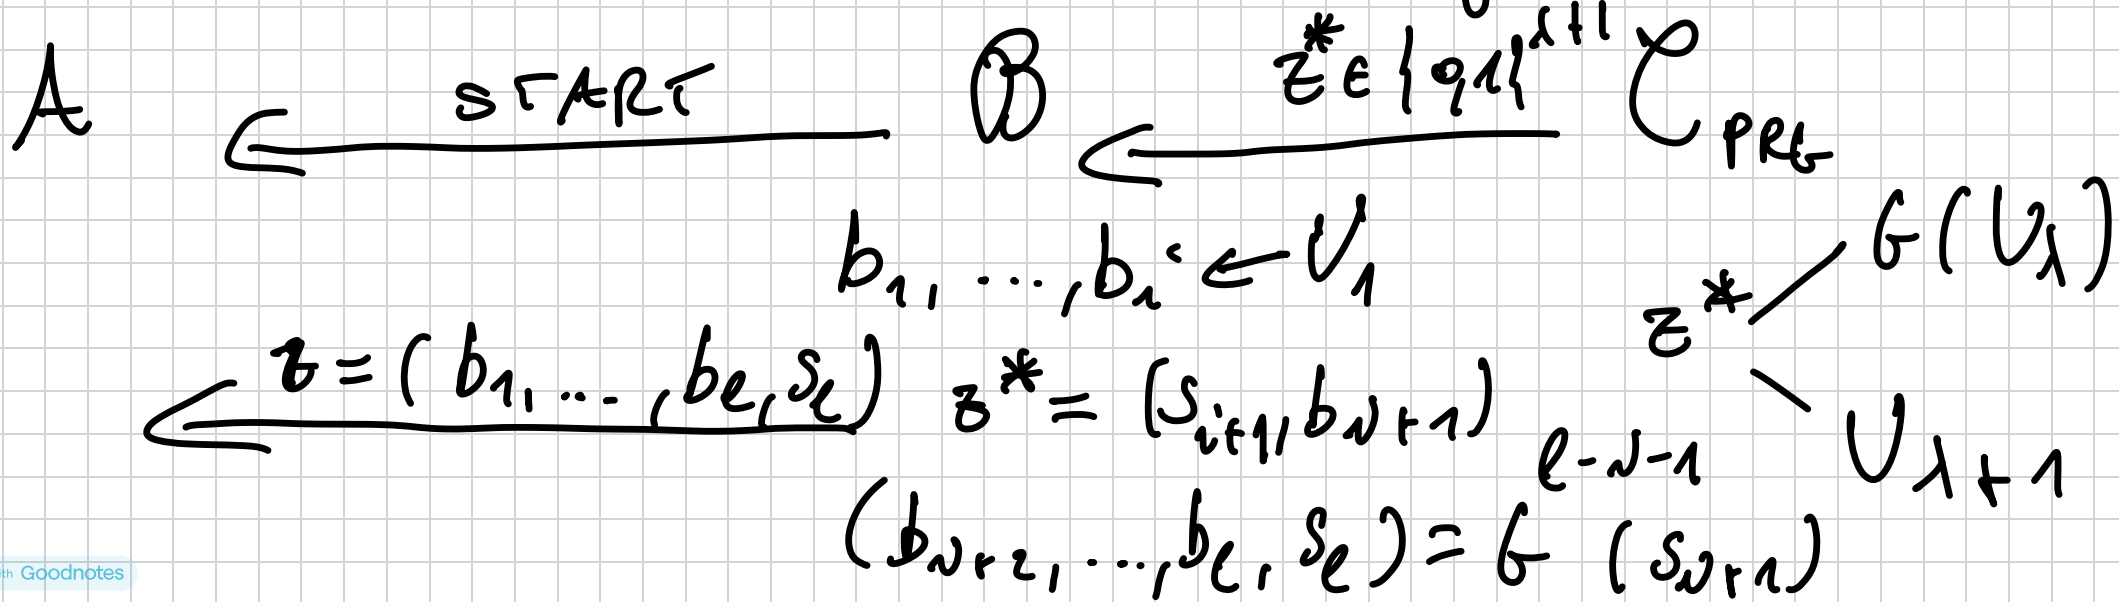 A START B z* ∈ {0,1}^{λ+1} C_{PRG}
b_1, ..., b_i ← U_1
G(U_λ)
z*
U_{λ+1}
z = (b_1, ..., b_ℓ, s_ℓ) z* = (s_{i+1}, b_{i+1})
(b_{i+2}, ..., b_ℓ, s_ℓ) = G^{ℓ-i-1}(s_{i+1})
with Goodnotes